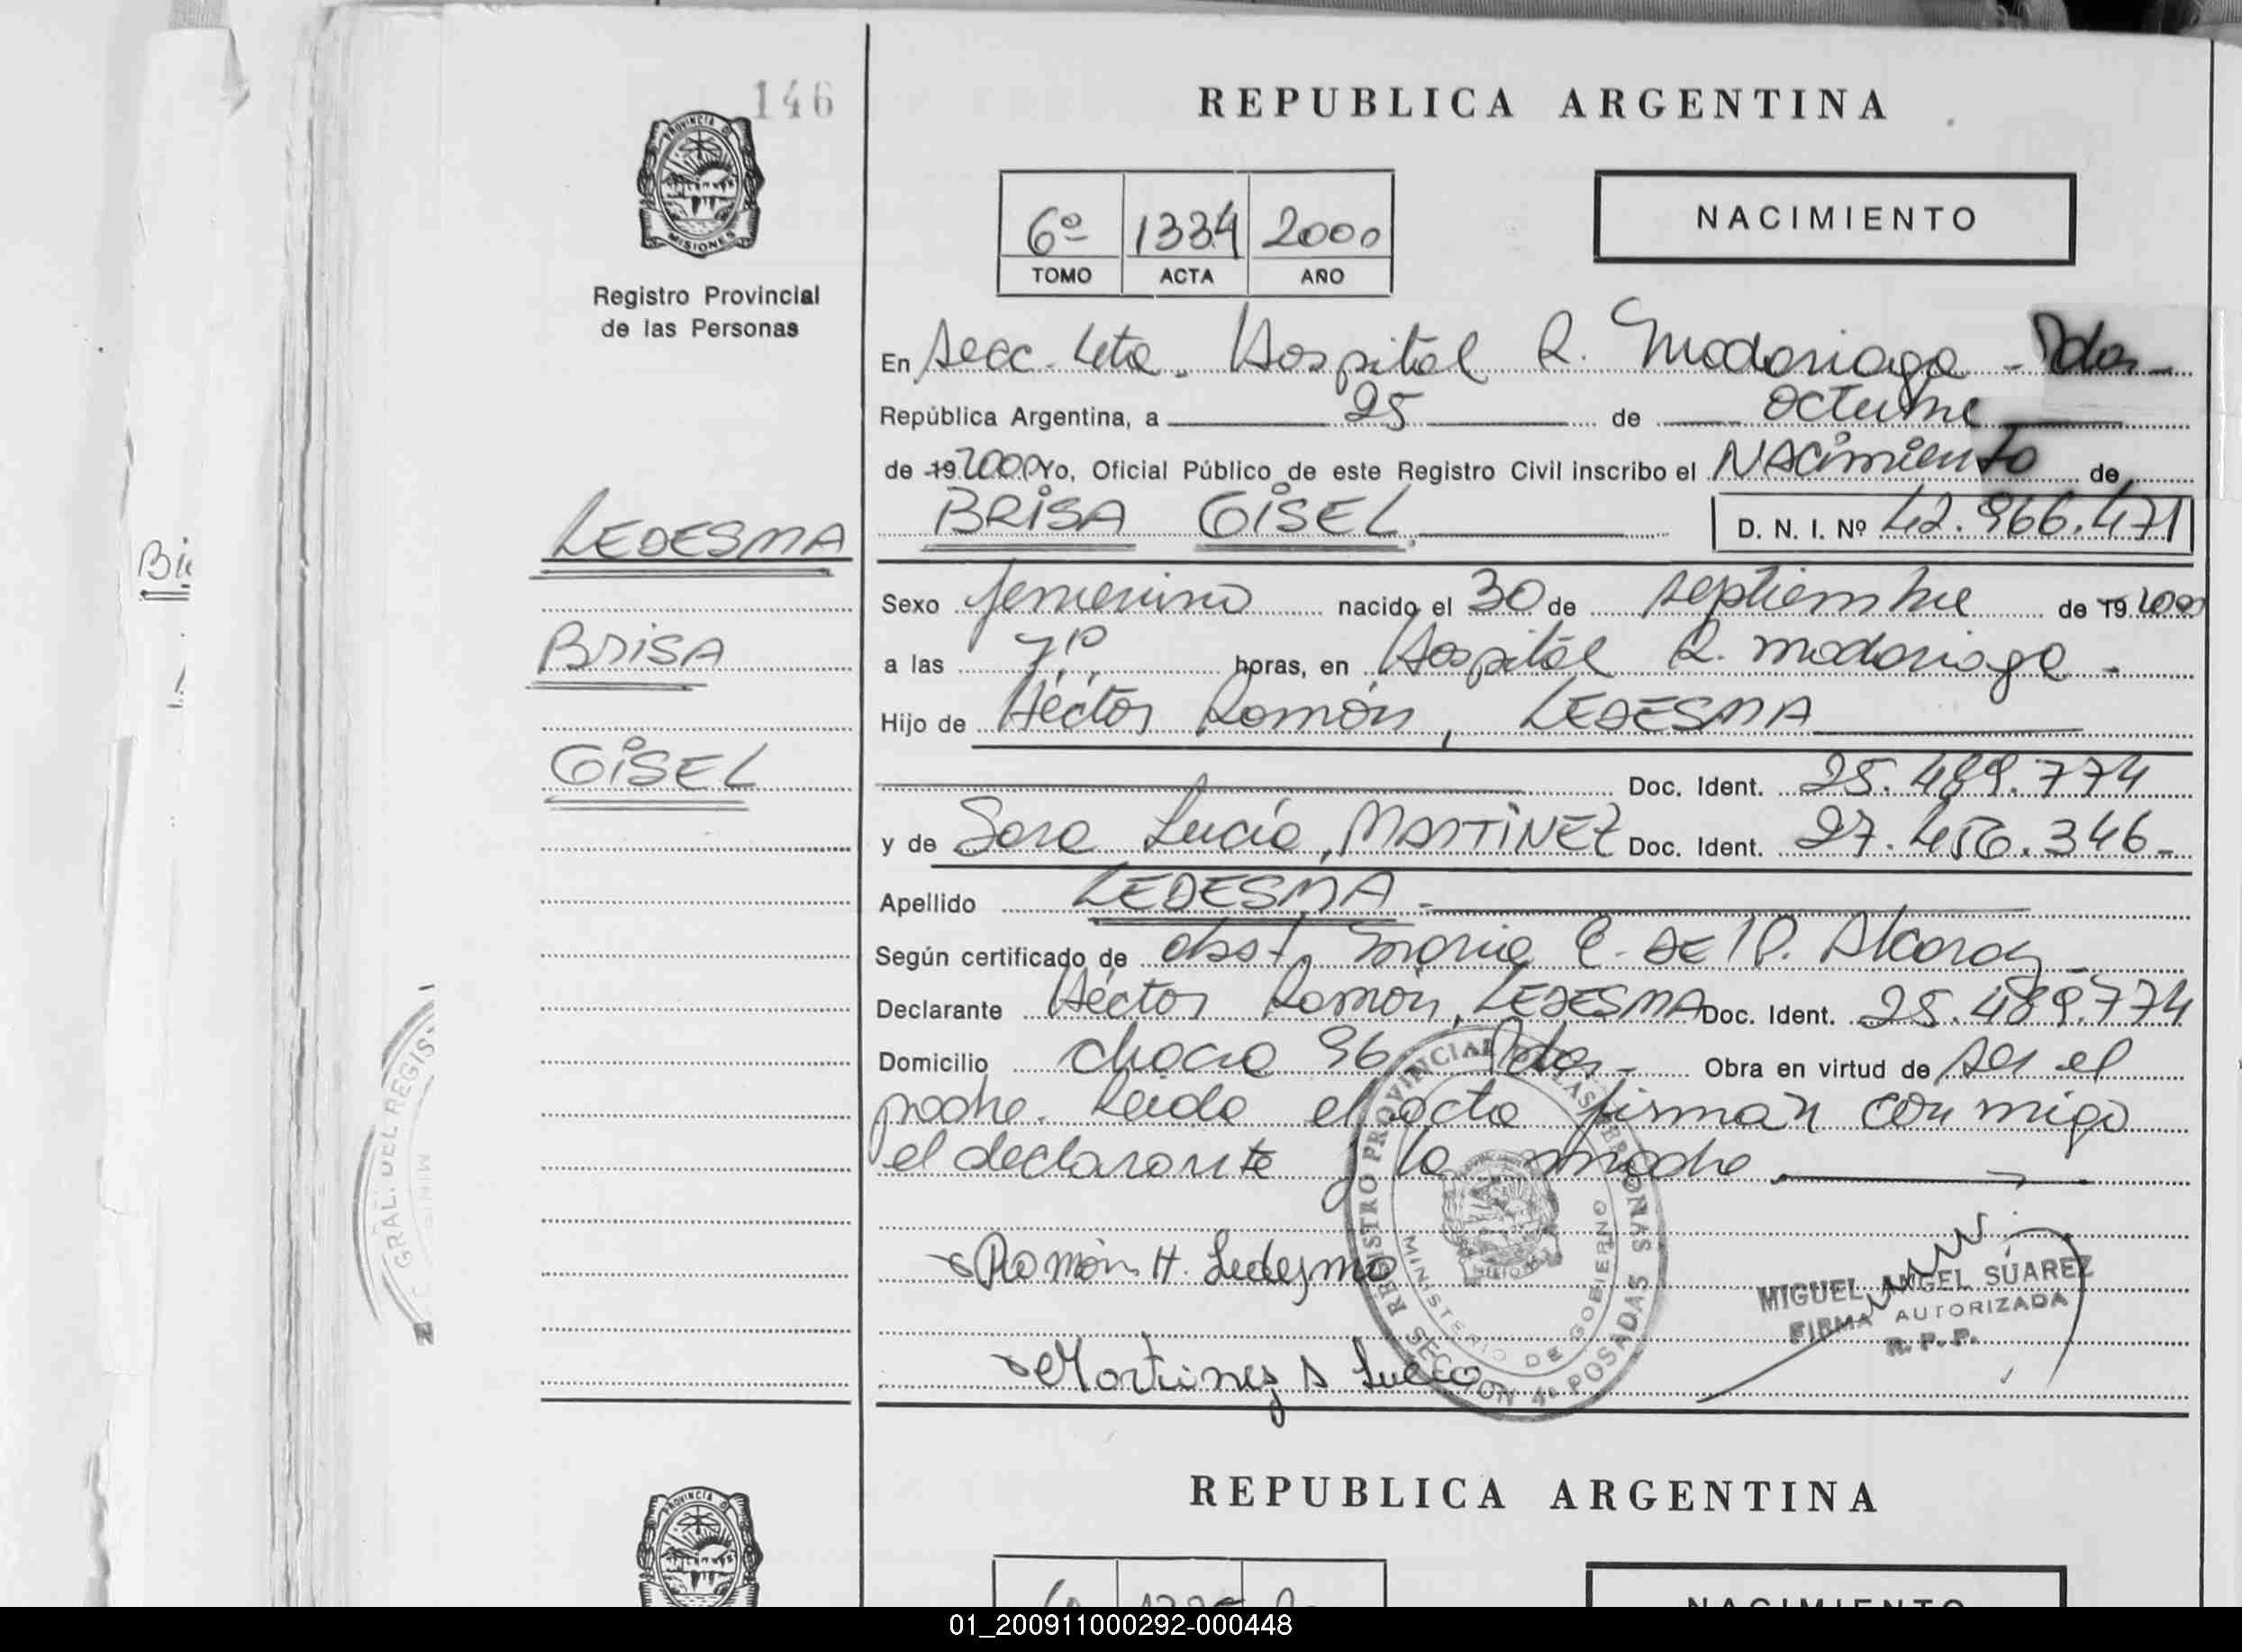 146
REPUBLICA ARGENTINA
PROVINCIA DE
MISIONES
Registro Provincial
de las Personas
6º 1334 2000
TOMO ACTA AÑO
NACIMIENTO
En Secc. 4ta. Hospital R. Madariaga - Pdas -
República Argentina, a 25 de octubre
de 19 2000 Yo, Oficial Público de este Registro Civil inscribo el NAcimiento de
LEDESMA
BRISA GISEL D. N. I. Nº 42.966.471
Sexo femenino nacido el 30 de septiembre de 19 2000
BriSA
a las 7,10 horas, en Hospital R. Madariaga -
Hijo de Héctor Ramón, LEDESMA
GiSEL
Doc. Ident. 25.489.774
y de Sara Lucía, MARTINEZ Doc. Ident. 27.456.346-
Apellido LEDESMA -
Según certificado de obst. María E. DE P. Alcaraz -
Declarante Héctor Ramón, LEDESMA Doc. Ident. 25.489.774
Domicilio chacra 96 Pdas - Obra en virtud de ser el
padre. Leida el acta firman conmigo
el declarante y la madre
Ramón H. Ledesma
Martinez S Lucia
REGISTRO PROVINCIAL DE LAS PERSONAS
MINISTERIO DE GOBIERNO
SECCION 4a POSADAS
MIGUEL ANGEL SUAREZ
FIRMA AUTORIZADA
R. P. P.
GRAL. DEL REGIS
MINIS
REPUBLICA ARGENTINA
PROVINCIA DE
NACIMIENTO
01_200911000292-000448